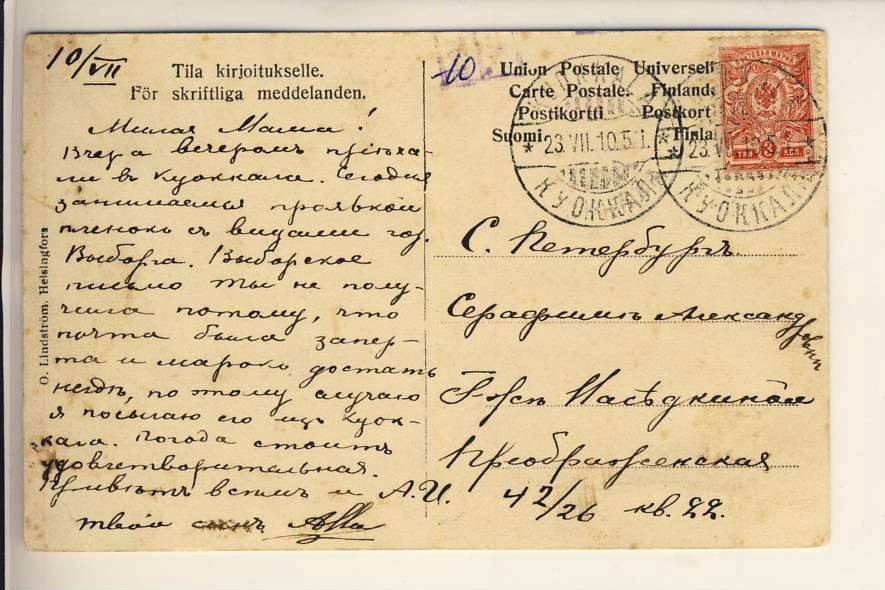 10/VII
Tila kirjoitukselle.
För skriftliga meddelanden.
Милая Мама!
Вчера вечеромъ пріѣха-
ли въ Куоккала. Сегодня
занимаемся проявкой
пленокъ съ видами гор.
Выборга. Выборское
письмо ты не полу-
чила потому, что
почта была запер-
та и марокъ достать
негдѣ, по этому случаю
я посылаю его изъ Куок-
кала. Погода стоитъ
удовлетворительная.
Привѣтъ всѣмъ и А.И.
твой сынъ
O. Lindström. Helsingfors
10
Union Postale Universell
Carte Postale. Finland
Postikortti Postkort
Suomi Finlan
23.VII.10
КУОККАЛА
23.VII.10
КУОККАЛА
ТРИ 3 КОП.
С. Петербургъ.
Серафимѣ Александровнѣ
Г-жѣ Насѣдкиной
Преображенская
42/26 кв. 22.